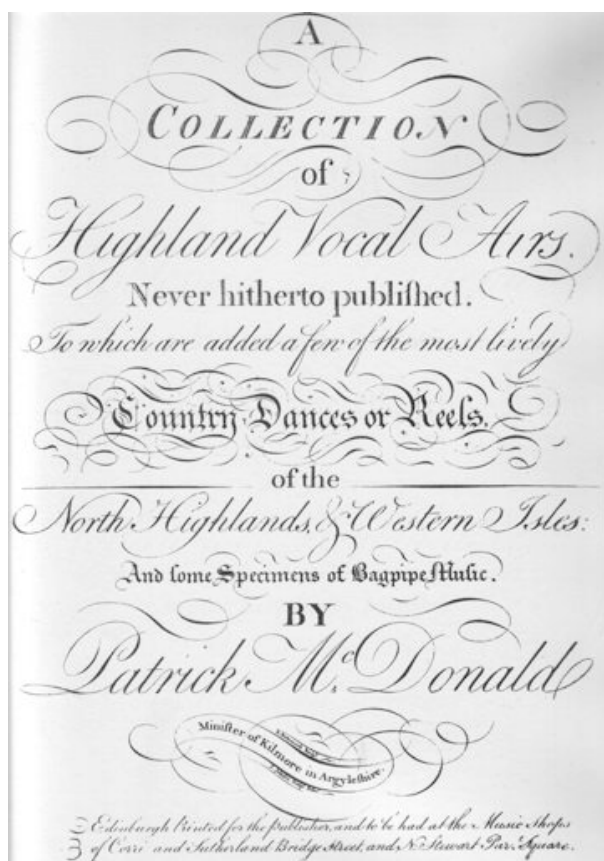 A
COLLECTION
of
Highland Vocal Airs.
Never hitherto publiſhed.
To which are added a few of the most lively
Country Dances or Reels.
of the
North Highlands, & Western Isles:
And ſome Specimens of Bagpipe Muſic.
BY
Patrick Mc. Donald
Miniſter of Kilmore in Argyleſhire.
Edinburgh Printed for the Publisher, and to be had at the Music Shops
of Corri and Sutherland Bridge Street, and N. Stewart Par. Square.